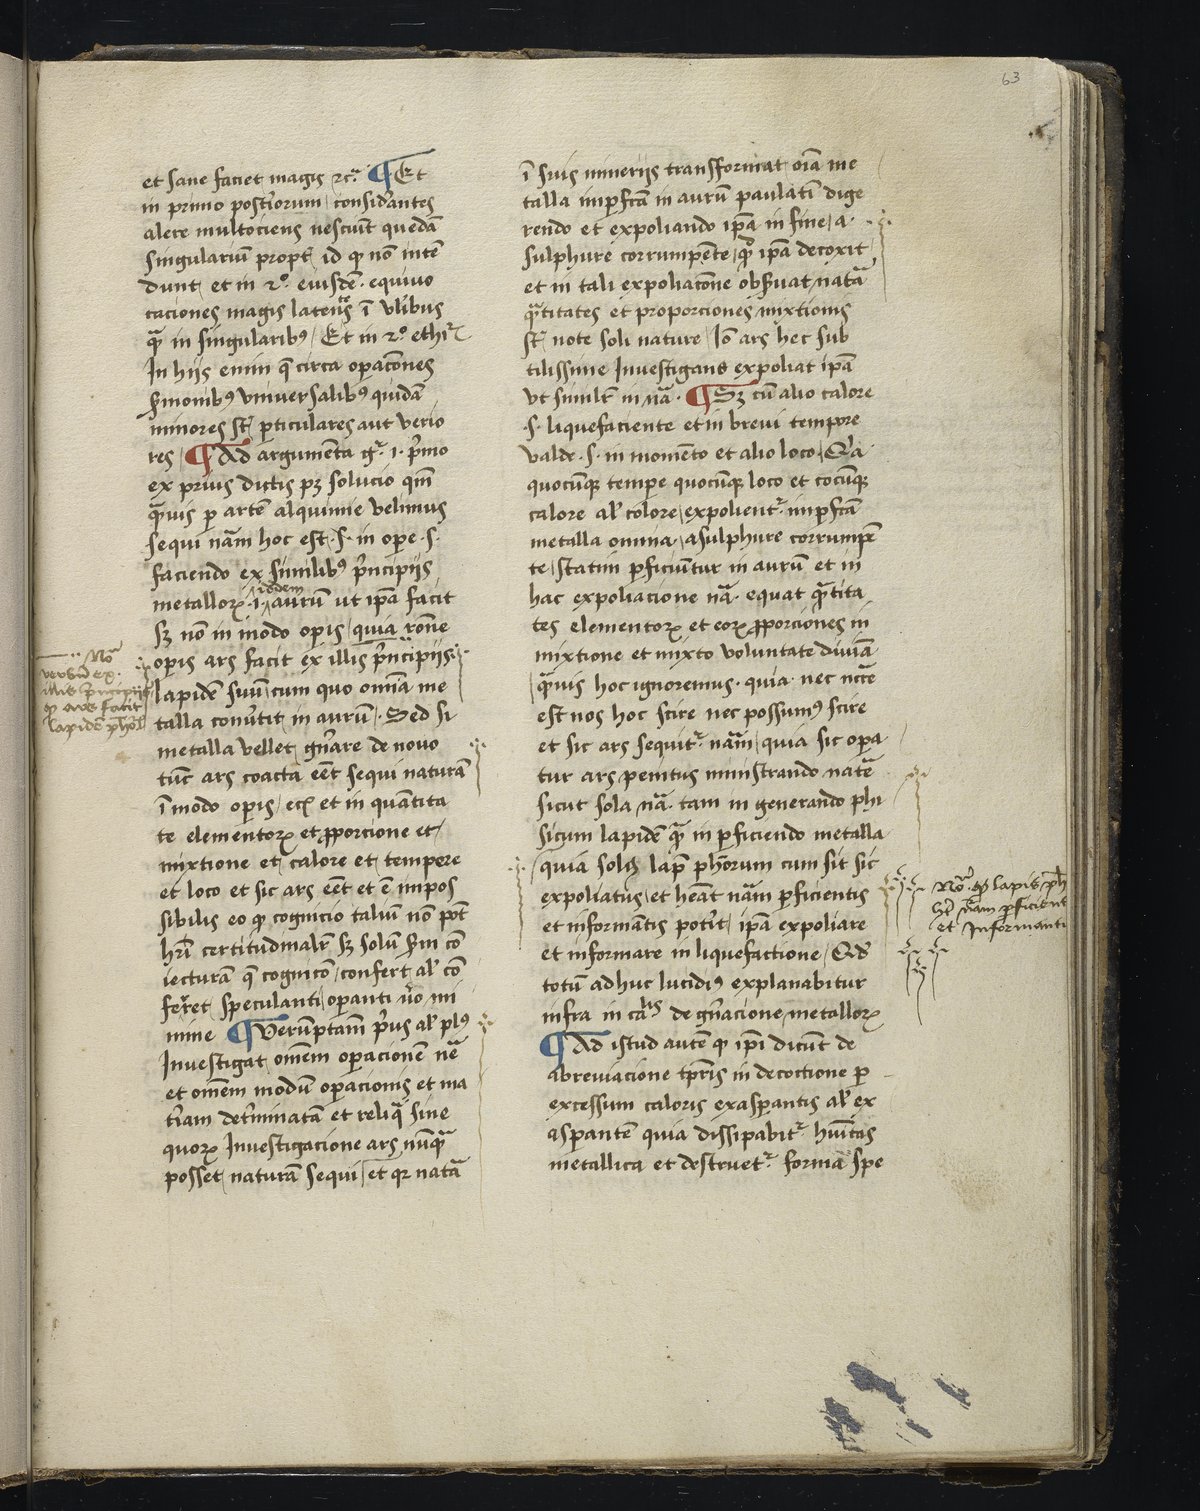 63
et sane faciet magis ⁊cͣ. ¶ Et
in primo posterioru(m) considerantes
alere multociens nesciu̅t queda̅
singulariu̅ propt̕ id qꝫ no̅ inten̅
dunt et in 2º. eiusde̅. equiuo
caciones magis latent̕ i̅ vl̕ibus
qᷓ in singularibꝰ / Et in 2º ethiꝶ
In hiis enim q̅ circa opac̅o̅nes
s̕monibꝰ vniuersalibꝰ quida̅
minores s̅t ꝑticulares aut verio
res / ¶ Ad argume̅ta gͬ. 1. pͥmo
ex prius dictis pꝫ solucio qm̅
qᷓuis ꝑ arte̅ alquimie velimus
sequi na̅m hoc est .s. in ope .s.
faciendo ex similibꝰ pͥncipiis
metalloꝝ .i. idem auru̅ ut ip̅a facit
sꝫ no̅ in modo opis / quia ro̅ne
opis ars facit ex illis pͥncipiis
lapide̅ suu̅ / cum quo omi̅a me
talla conu̕tit in auru̅ . Sed si
metalla vellet gn̅are de nouo
tu̅c ars coacta ee̅t sequi natura̅
i̅ modo opis / eci̅ et in quantita
te elementoꝝ et ꝓporcione et
mixtione et calore et tempere
et loco et sic ars ee̅t et e̅ impos
sibilis eo qꝫ cognicio taliu̅ no̅ pot̅
h̅ri certitudinalit̕ sꝫ solu̅ s̕m co̅
iectura̅ q̅ cognico̅ / confert al̕ co̅
ferret speculanti / operanti v̕o mi
nime ¶ Veru̅ptam̅ pͥus al̕ plꝰ
Inuestigat om̅em operacionem n̅e
et om̅em modu̅ operacionis et ma
t̕iam det̕minata̅ et reliqᷓ sine
quoꝝ Inuestigacione ars nu̅qᷓ
posset / natura̅ sequi / et qꝛ nata̅
i̅ suis mineriis transformat oi̅a me
talla impfc̅a in auru̅ paulati̅ dige
rendo et expoliando ip̅a in fine / a
sulphure corrumpe̅te / qᷓ ip̅a decoxit
et in tali expoliaco̅ne obs̕uat nata̅
qᷓtitates et proporciones mixtionis
s̅t note soli nature / Io̅ ars hec sub
tilissime Inuestigans expoliat ip̅a
vt simil̕r in na̅. ¶ Sꝫ cu̅ alio calore
.s. liquefaciente et in breui tempore
valde .s. in mome̅to et alio loco / Qͥa
quocu̅qꝫ tempe quocu̅qꝫ loco et cocu̅qꝫ
calore al̕ colore / expolientͬ impfc̅a
metalla omnia / a sulphure corrumpe̅
te / statim ꝑficiu̅tur in auru̅ et in
hac expoliacione na̅. equat qᷓtita
tes elementoꝝ et eoꝝ ꝓporciones in
mixtione et mixto voluntate diui̅a
qᷓuis hoc ignoremus . quia nec nc̅e
est nos hoc scire nec possumꝰ scire
et sic ars sequitͬ na̅m / quia sic opa
tur ars penitus ministrando nate̅
sicut sola na̅. tam in generando phi
sicum lapide̅ qᷓ in ꝑficiendo metalla
quia solꝫ lap̅ ph̅orum cum sit sic
expoliatus / et hea̅t na̅m ꝑficientis
et informa̅tis pot̕it / ip̅a expoliare
et informare in liquefactione / Qd̕
totu̅ adhuc lucidiꝰ explanabitur
infra in caˡⁱˢ de gn̅acione metalloꝝ
¶ Ad istud aute̅ qꝫ ip̅i dicu̅t de
abreuiacione tp̅ris in decoctione ꝑ
excessum caloris exaspantis al̕ ex
aspante̅ quia dissipabitͬ. hui̅tas
metallica et destruetͬ. forma̅ spe
Noͣ
versu̅ ex
illis pͥncipiis
qꝫ ars facit
lapide̅ ph̅oꝶ
Noͣ. qꝫ lapis ph̅
h̅t na̅m ꝑficient
et Informanti